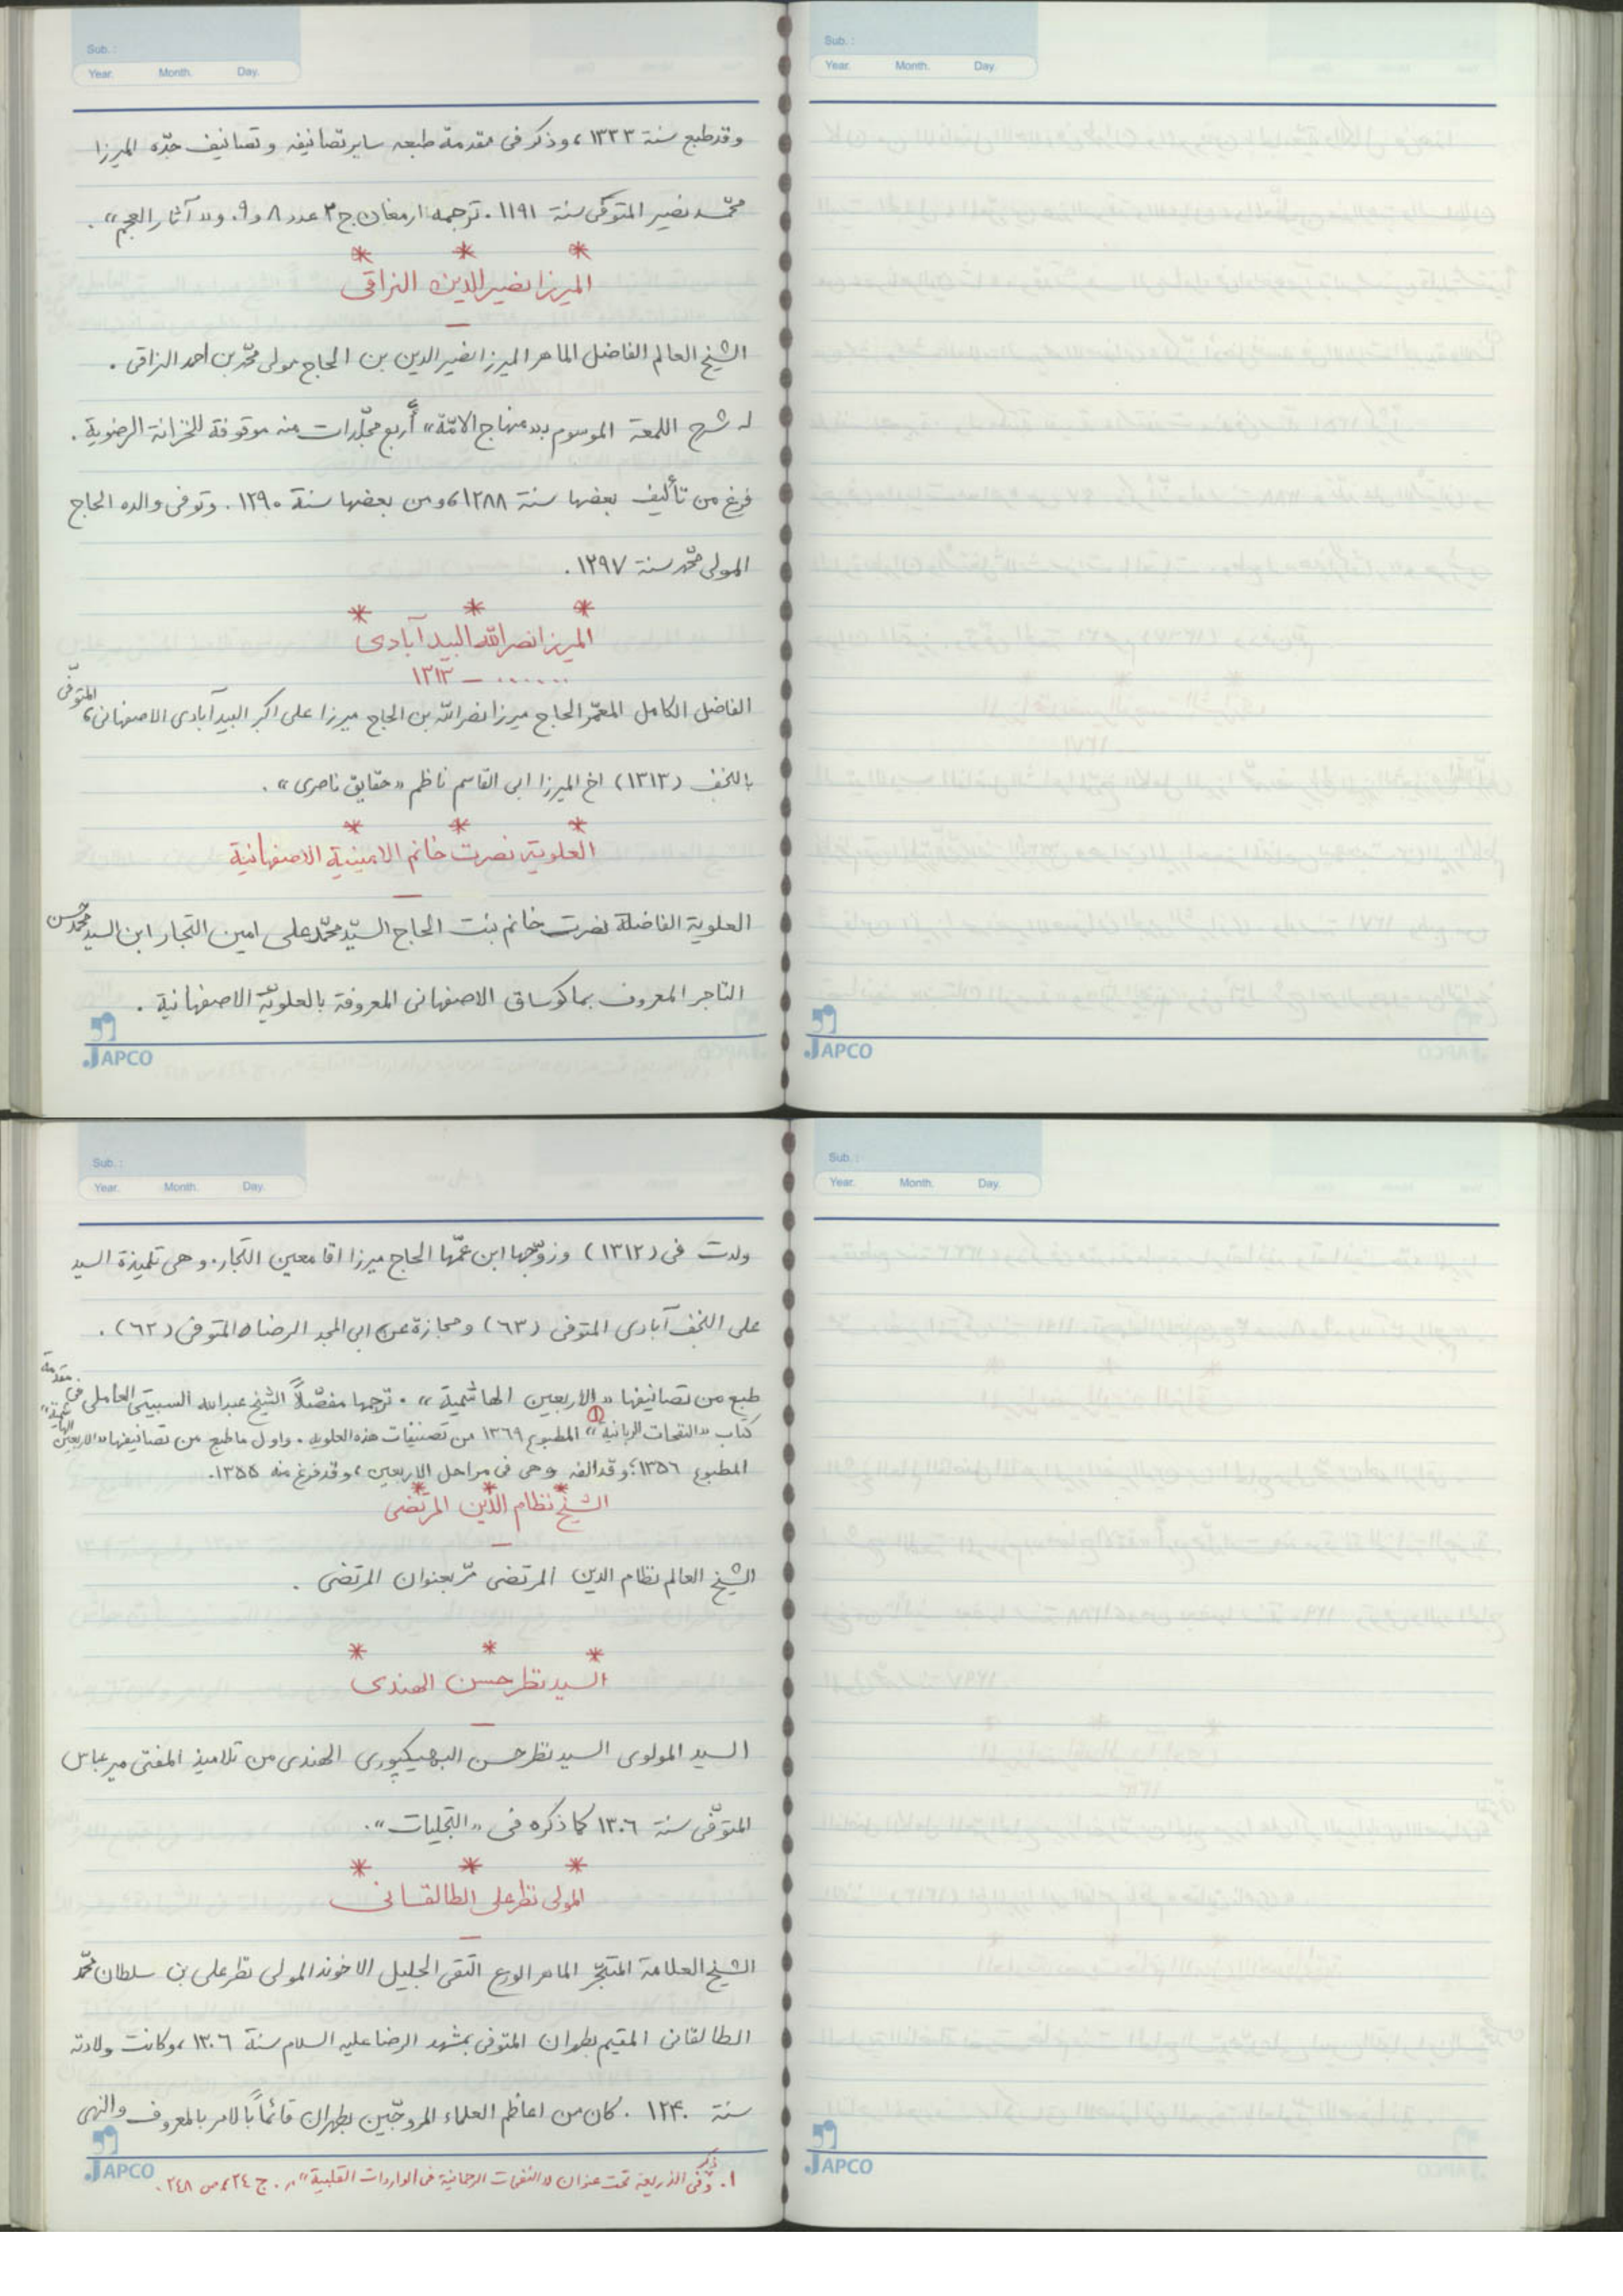 Sub. :
Year. Month. Day.
وقد طبع سنة ١٣٣٣، وذکر فی مقدمة طبعه سایر تصانیفه و تصانیف جدّه المیرزا
محمّد نصیر المتوفّی سنة ١١٩١. ترجمه ارمغان ج ٣ عدد ٨ و ٩. و «آثار العجم».
* * *
المیرزا نصیر الدین النراقی
—
الشیخ العالم الفاضل الماهر المیرزا نصیر الدین بن الحاج مولی محمّد بن احمد النراقی.
له شرح اللمعة الموسوم بـ«منهاج الامّة» أربع مجلّدات منه موقوفة للخزانة الرضویة.
فرغ من تألیف بعضها سنة ١٢٨٨، ومن بعضها سنة ١٢٩٠. وتوفی والده الحاج
المولی محمّد سنة ١٢٩٧.
* * *
المیرزا نصر الله البید آبادی
...... – ١٣١٣
الفاضل الکامل المعمّر الحاج میرزا نصر الله بن الحاج میرزا علی اکبر البید آبادی الاصفهانی، المتوفّی
بالنجف (١٣١٣) اخ المیرزا ابی القاسم ناظم «حقایق ناصری».
* * *
العلویة نصرت خانم الامینیة الاصفهانیة
—
العلویة الفاضلة نصرت خانم بنت الحاج السیّد محمّد علی امین التجار ابن السید محمد حسن
التاجر المعروف بماکوساق الاصفهانی المعروفة بالعلویّة الاصفهانیة.
JAPCO
Sub. :
Year. Month. Day.
JAPCO
Sub. :
Year. Month. Day.
ولدت فی (١٣١٢) وزوّجها ابن عمّها الحاج میرزا اقا معین التجار. و هی تلمیذة السید
علی النجف آبادی المتوفی (٦٣) ومجازة عن ابی المجد الرضا المتوفی (٦٢).
طبع من تصانیفها «الاربعین الهاشمیة». ترجمها مفصّلاً الشیخ عبدالله السبیتی العاملی فی مقدمة
کتاب «النفحات الربانیة»(١) المطبوع ١٣٦٩ من تصنیفات هذه العلویه. واول ما طبع من تصانیفها «الاربعین الهاشمیة»
المطبوع ١٣٥٦؛ وقد الفه وهی فی مراحل الاربعین، وقد فرغ منه ١٣٥٥.
* * *
الشیخ نظام الدّین المرتضی
—
الشیخ العالم نظام الدین المرتضی مرّ بعنوان المرتضی.
* * *
السید نظر حسن الهندی
—
السید المولوی السید نظر حسن البهیکپوری الهندی من تلامیذ المفتی میر عباس
المتوفّی سنة ١٣٠٦ کما ذکره فی «التجلیات».
* * *
المولی نظر علی الطالقانی
—
الشیخ العلامة المتبحّر الماهر الورع التقی الجلیل الاخوند المولی نظر علی بن سلطان محمّد
الطالقانی المقیم بطهران المتوفی بمشهد الرضا علیه السلام سنة ١٣٠٦، وکانت ولادته
سنة ١٢۴٠. کان من اعاظم العلماء المروجّین بطهران قائماً بالامر بالمعروف والنهی
JAPCO
١. ذکر فی الذریعة تحت عنوان «النفحات الرحمانیة فی الواردات القلبیة»، ر. ج ٢٤، ص ٢٤٨.
Sub. :
Year. Month. Day.
JAPCO